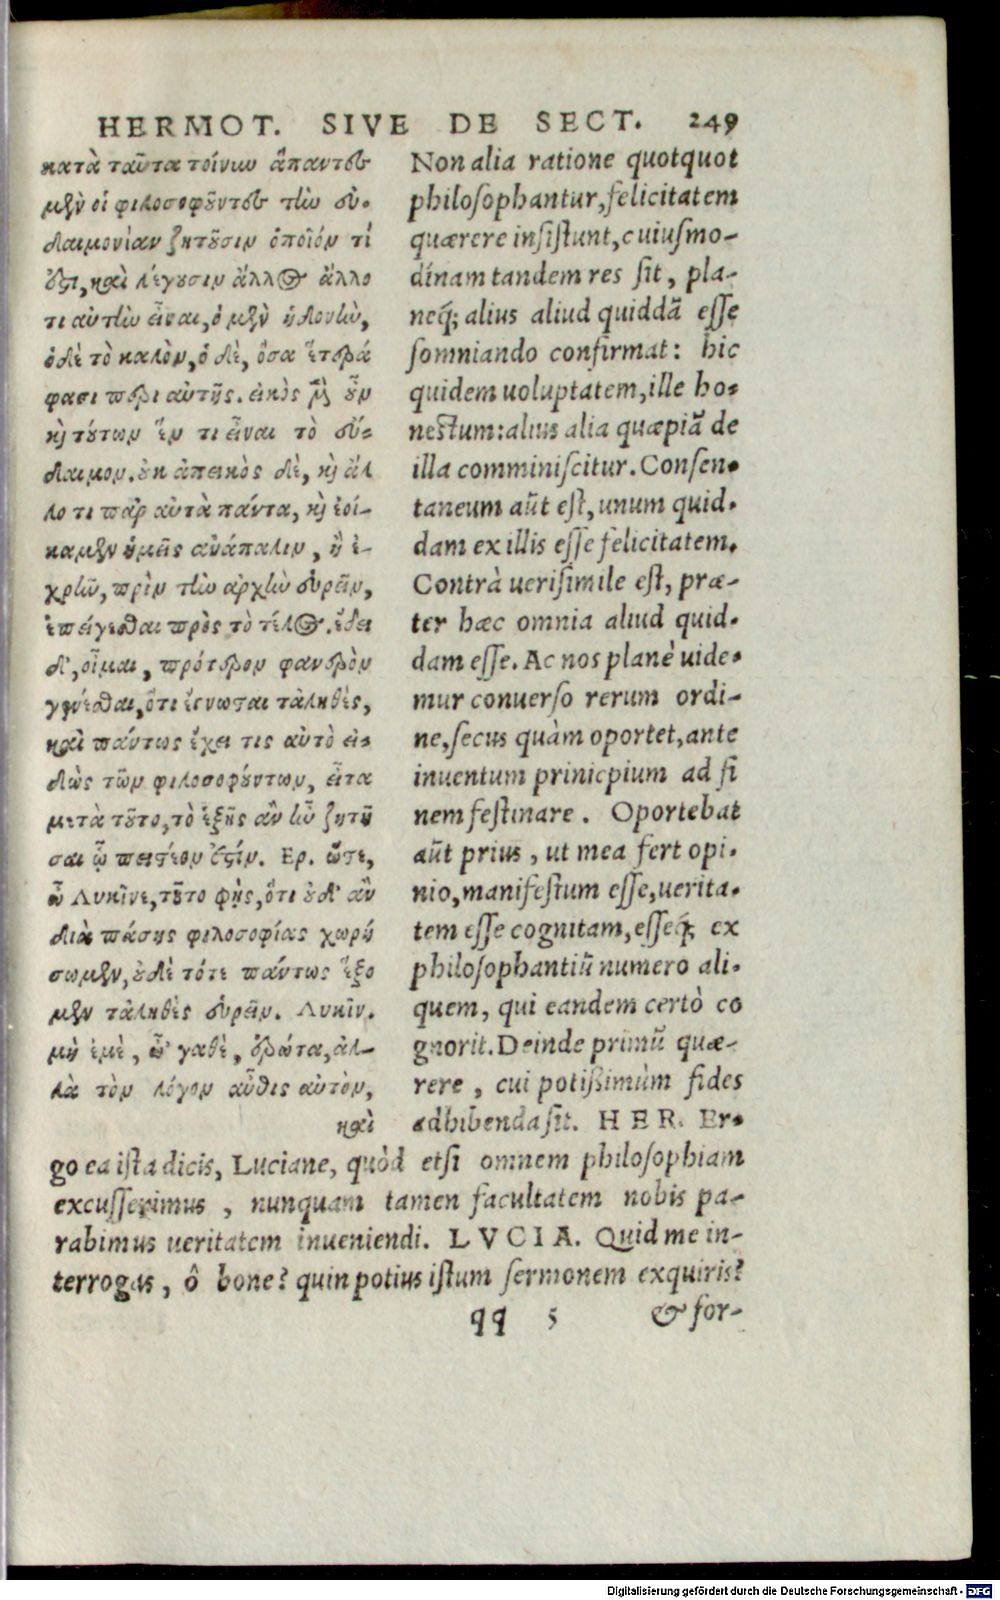 HERMOT. SIVE DE SECT. 249
κατὰ ταῦτα τοίνυν ἅπαντες
μὲν οἱ φιλοσοφοῦντες τὴν εὐ-
δαιμονίαν ζητοῦσιν ὁποῖόν τί
ἐστι, καὶ λέγουσιν ἄλλος ἄλλο
τι αὐτὴν εἶναι, ὁ μὲν ἡδονὴν,
ὁ δὲ τὸ καλὸν, ὁ δὲ, ὅσα ἕτερά
φασι περὶ αὐτῆς. εἰκὸς μὲν οὖν
καὶ τούτων ἕν τι εἶναι τὸ εὔ-
δαιμον. οὐκ ἀπεικὸς δὲ, καὶ ἄλ
λο τι παρ αὐτὰ πάντα, καὶ ἐοί-
καμεν ἡμεῖς ἀνάπαλιν, ἢ ἐ-
χρῆν, πρὶν τὴν ἀρχὴν εὑρεῖν,
ἐπείγεσθαι πρὸς τὸ τέλος. ἔδει
δ', οἶμαι, πρότερον φανερὸν
γενέσθαι, ὅτι ἔγνωσται τἀληθὲς,
καὶ πάντως ἔχει τις αὐτὸ εἰ-
δὼς τῶν φιλοσοφούντων, εἶτα
μετὰ τοῦτο, τὸ ἑξῆς ἂν ἦν ζητῆ
σαι ᾧ πειστέον ἐστίν. Ερ. ὥστε,
ὦ Λυκῖνε, τοῦτο φῂς, ὅτι οὐδ' ἂν
διὰ πάσης φιλοσοφίας χωρή
σωμεν, οὐδὲ τότε πάντως ἕξο
μεν τἀληθὲς εὑρεῖν. Λυκῖν.
μὴ ἐμὲ, ὦ 'γαθὲ, ἐρώτα, ἀλ-
λὰ τὸν λόγον αὖθις αὐτὸν,
καὶ
Non alia ratione quotquot
philosophantur, felicitatem
quærere insistunt, cuiusmo-
dínam tandem res sit, pla-
neq́; alius aliud quiddã esse
somniando confirmat: hic
quidem uoluptatem, ille ho-
nestum: alius alia quæpiã de
illa comminiscitur. Consen-
taneum aũt est, unum quid-
dam ex illis esse felicitatem.
Contrà uerisimile est, præ-
ter hæc omnia aliud quid-
dam esse. Ac nos planè uide-
mur conuerso rerum ordi-
ne, secus quàm oportet, ante
inuentum prinicpium ad fi
nem festinare. Oportebat
aũt prius, ut mea fert opi-
nio, manifestum esse, uerita-
tem esse cognitam, esseq́; ex
philosophantiũ numero ali-
quem, qui eandem certò co
gnorit. Deinde primũ quæ-
rere, cui potißimùm fides
adhibenda sit. HER. Er-
go ea ista dicis, Luciane, quòd etsi omnem philosophiam
excusserimus, nunquam tamen facultatem nobis pa-
rabimus ueritatem inueniendi. LVCIA. Quid me in-
terrogas, ô bone? quin potius istum sermonem exquiris?
qq 5 & for-
Digitalisierung gefördert durch die Deutsche Forschungsgemeinschaft - DFG